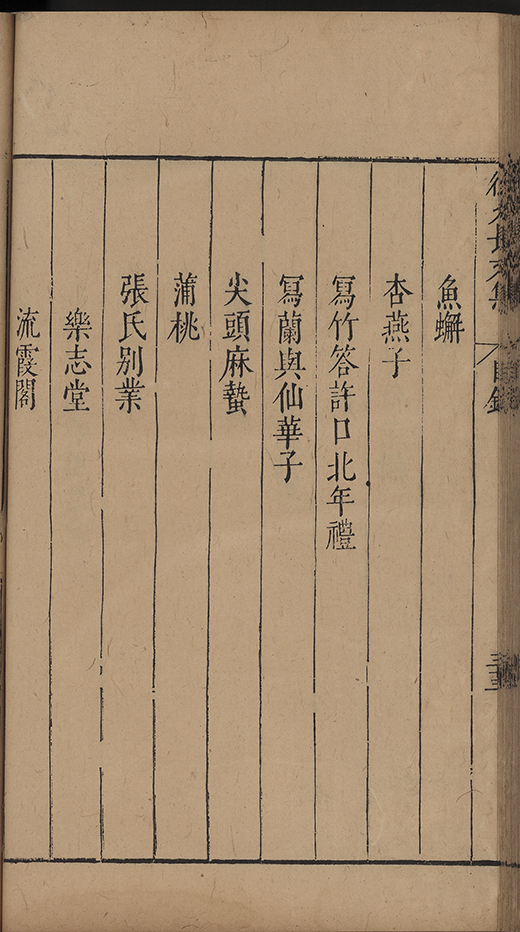 徐文長文集
目錄
魚蠏
杏燕子
寫竹答許口北年禮
寫蘭與仙華子
尖頭麻蟄
蒲桃
張氏别業
樂志堂
流霞閣